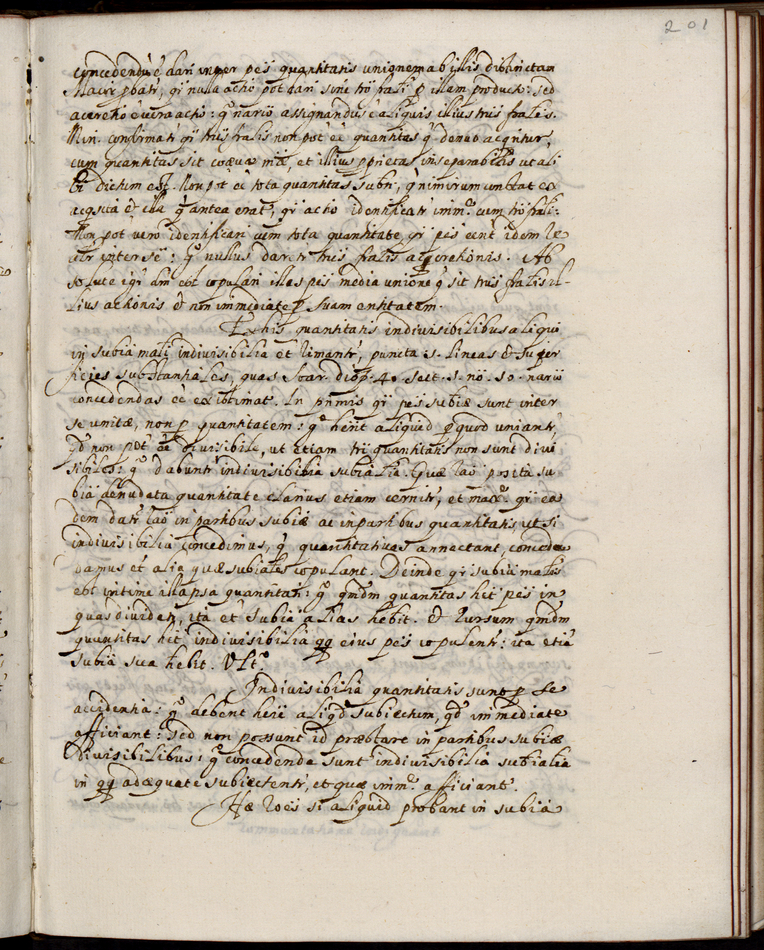 201
concedendũ ẽ dari inter pẽs quantitatis unionem ab illis distinctam
Maior pbatr, qr nulla actio põt dari sine trõ frali p illam producto: sed
acretio ẽ vera actio: gº nariõ assignandus ẽ aliquis illius trüs fralis.
Min. confirmatr qr trüs fralis non põt ẽẽ quantitas q̃ denuo acqritur,
cum quantitas sit coæva mæ, et illius pprietas inseparabilis ut ali
bi dictum est. Non põt ẽẽ tota quantitas subæ, q̃ nimirum
ẽ illa q̃ antea erat, qr actio identificatr immº cum trõ frali.
Non pot vero identificari cum tota quantitate qr pẽs eent idem
inter sẽ: gº nullus daretr trüs fralis accretionis. Ab
solute igr dm̃ est copulari illas pẽs media unione q̃ sit trüs fralis il-
lius actionis et non immediate p suam entitatem.
Ex his quantitatis indivisibilibus aliqui
in subiã mali indivisibilia et rimantr, puncta .s. lineas et super
ficies substantiales, quas Soar. disp. 40 sect. 5. nõ. 50. nariõ
concedendas ẽẽ existimat. In primis qr pẽs subiæ sunt inter
se unitæ, non p quantitatem: gº hẽnt aliquid p quod uniantr,
qd non põt ẽẽ divisibile, ut etiam trüs quantitatis non sunt divi
sibiles: gº dabuntr indivisibilia subialia. Quæ raõ posita su
biã denudata quantitate clarius etiam cernitr, et maxº. qr ea
dem datr raõ in partibus subiæ ac in partibus quantitatis, ut si
indivisibilia concedimus, q̃ quantitativas annectant, conceda
damus et alia quæ subiales copulant. Deinde qr subiã malis
est intime illapsa quantitati: gº qmdm quantitas hẽt pẽs in
quas dividatr, ita et subiã alias hẽbit. Et rursum qmdm
quantitas hẽt indivisibilia qq eius pẽs copulentr: ita etiã
subiã sua hẽbit. Ultº.
Indivisibilia quantitatis sunt p se
accidentia: gº debent hẽre aliqd subiectum, qd immediate
afficiant: sed non possunt id præstare in partibus subiæ
divisibilibus: gº concedenda sunt indivisibilia subialia
in qq adæquate subiectentr, et quæ immº. afficiant.
Hæ roẽs si aliquid probant in subiã